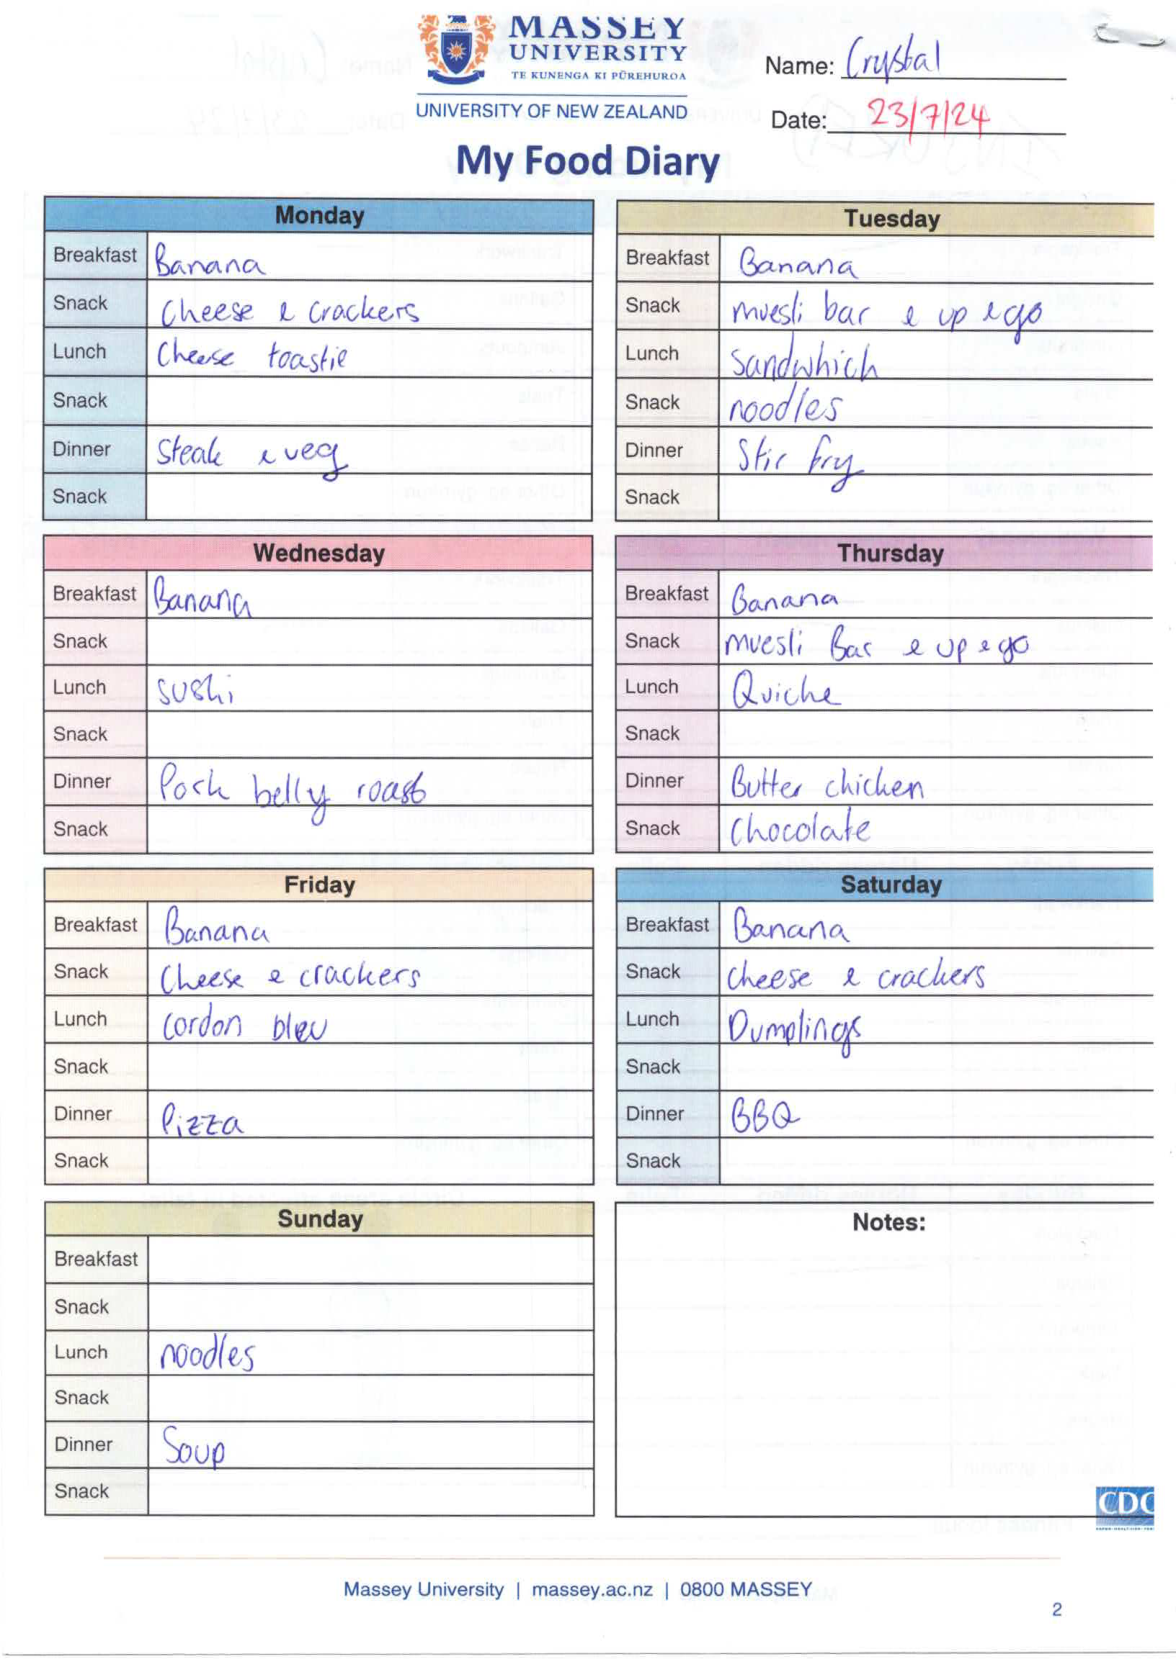 MASSEY
UNIVERSITY
TE KUNENGA KI PŪREHUROA
UNIVERSITY OF NEW ZEALAND
Name: Crystal
Date: 23/7/24
My Food Diary
Monday
Breakfast Banana
Snack Cheese & crackers
Lunch Cheese toastie
Snack
Dinner Steak & veg
Snack
Tuesday
Breakfast Banana
Snack muesli bar & up & go
Lunch Sandwhich
Snack noodles
Dinner Stir fry
Snack
Wednesday
Breakfast Banana
Snack
Lunch sushi
Snack
Dinner Pork belly roast
Snack
Thursday
Breakfast Banana
Snack muesli Bar & up & go
Lunch Quiche
Snack
Dinner Butter chicken
Snack Chocolate
Friday
Breakfast Banana
Snack Cheese & crackers
Lunch Cordon bleu
Snack
Dinner Pizza
Snack
Saturday
Breakfast Banana
Snack Cheese & crackers
Lunch Dumplings
Snack
Dinner BBQ
Snack
Sunday
Breakfast
Snack
Lunch noodles
Snack
Dinner Soup
Snack
Notes:
CDC
Massey University | massey.ac.nz | 0800 MASSEY
2